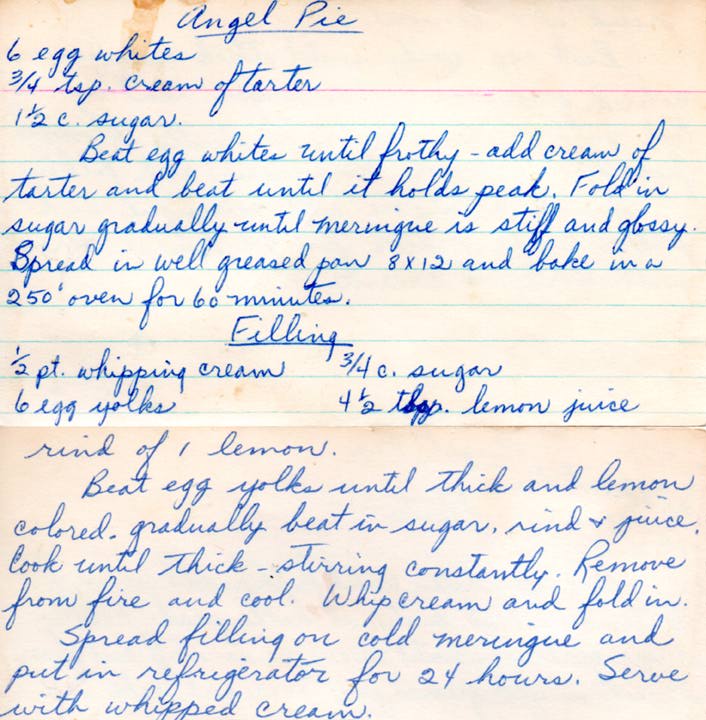 Angel Pie
6 egg whites
3/4 tsp. cream of tarter
1 1/2 c. sugar.
Beat egg whites until frothy - add cream of
tarter and beat until it holds peak. Fold in
sugar gradually until meringue is stiff and glossy.
Spread in well greased pan 8x12 and bake in a
250° oven for 60 minutes.
Filling
1/2 pt. whipping cream 3/4 c. sugar
6 egg yolks 4 1/2 lemon juice
rind of 1 lemon.
Beat egg yolks until thick and lemon
colored. gradually beat in sugar, rind & juice.
Cook until thick - stirring constantly. Remove
from fire and cool. Whip cream and fold in.
Spread filling on cold meringue and
put in refrigerator for 24 hours. Serve
with whipped cream.